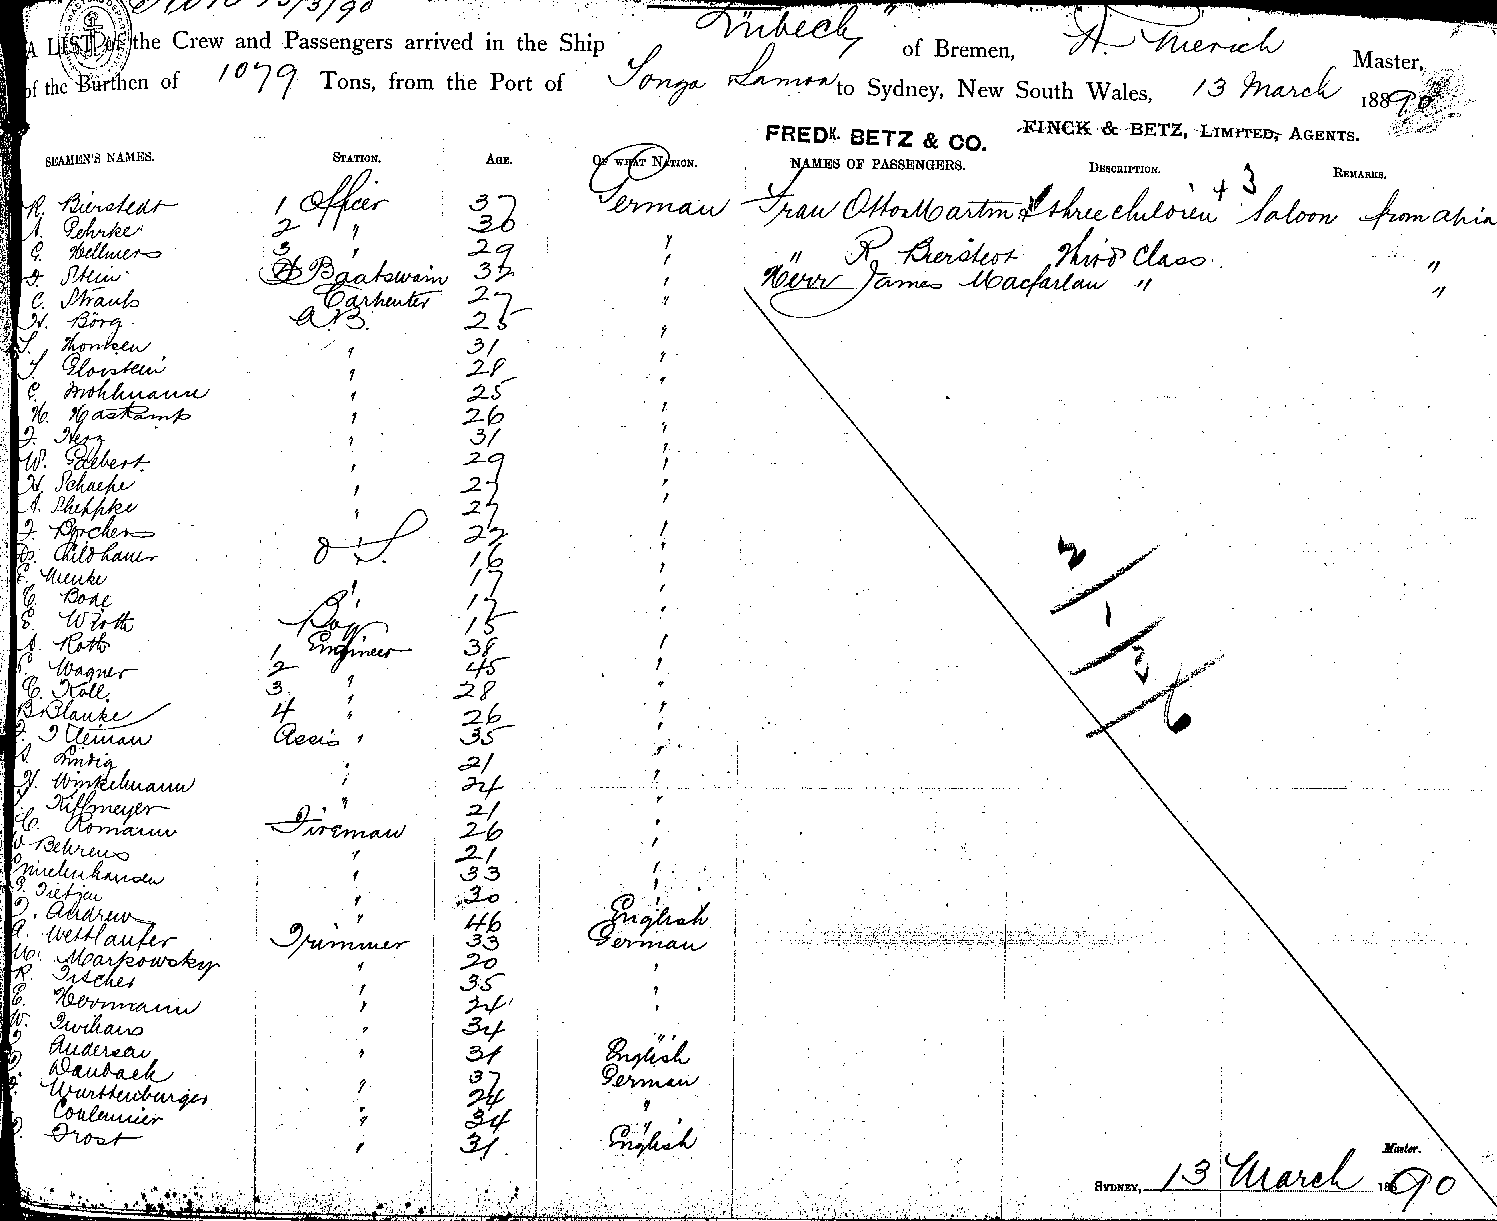 13/3/90
A LIST of the Crew and Passengers arrived in the Ship "Lübeck" of Bremen, A. Meirich Master,
of the Burthen of 1079 Tons, from the Port of Tonga Samoa to Sydney, New South Wales, 13 March 18890
FREDK. BETZ & CO. FINCK & BETZ, LIMITED, AGENTS.
SEAMEN'S NAMES. STATION. AGE. OF WHAT NATION. NAMES OF PASSENGERS. DESCRIPTION. REMARKS.
+ 3
R. Bierstedt 1 Officer 37 German Frau Otto Martin & three children Saloon from Apia
A. Gehrke 2 " 36 "
G. Hellmers 3 " 29 " " R. Bierstedt Third Class "
D. Stein Boatswain 32 " Herr James Macfarlan " "
C. Straub Carpenter 27 "
H. Börg A.B. 25 "
Thomsen " 31 "
Gloystein " 28 "
C. Mohlmann " 25 "
H. Haskamp " 26 "
F. Herz " 31 "
W. Galbert " 29 "
H. Schaepe " 27 "
A. Sheppke " 27 "
F. Borchers " 22 "
Childhauer O S. 16 "
Menke " 17 "
Bode " 17 "
Wroth Boy 15 "
Roth 1 Engineer 38 "
Wagner 2 " 45 "
C. Koll 3 " 28 "
B. Blanke 4 " 26 "
Kleman Assis " 35 "
Lindig " 21 "
H. Winkelmann " 24 "
Killmeyer " 21 "
C. Romann Fireman 26 "
W Behrens " 21 "
Mielenhausen " 33 "
Tietjen " 30 "
Andrew " 46 English
A. Westlaufer Trimmer 33 German
Markowsky " 20 "
R. Fischer " 35 "
E. Herrmann " 24 "
W. " 34 "
Anderson " 31 English
Danback " 37 German
Wurttenburger " 24 "
" 34 "
Frost " 31 English
2
1
3
6
Master.
SYDNEY, 13 March 18890